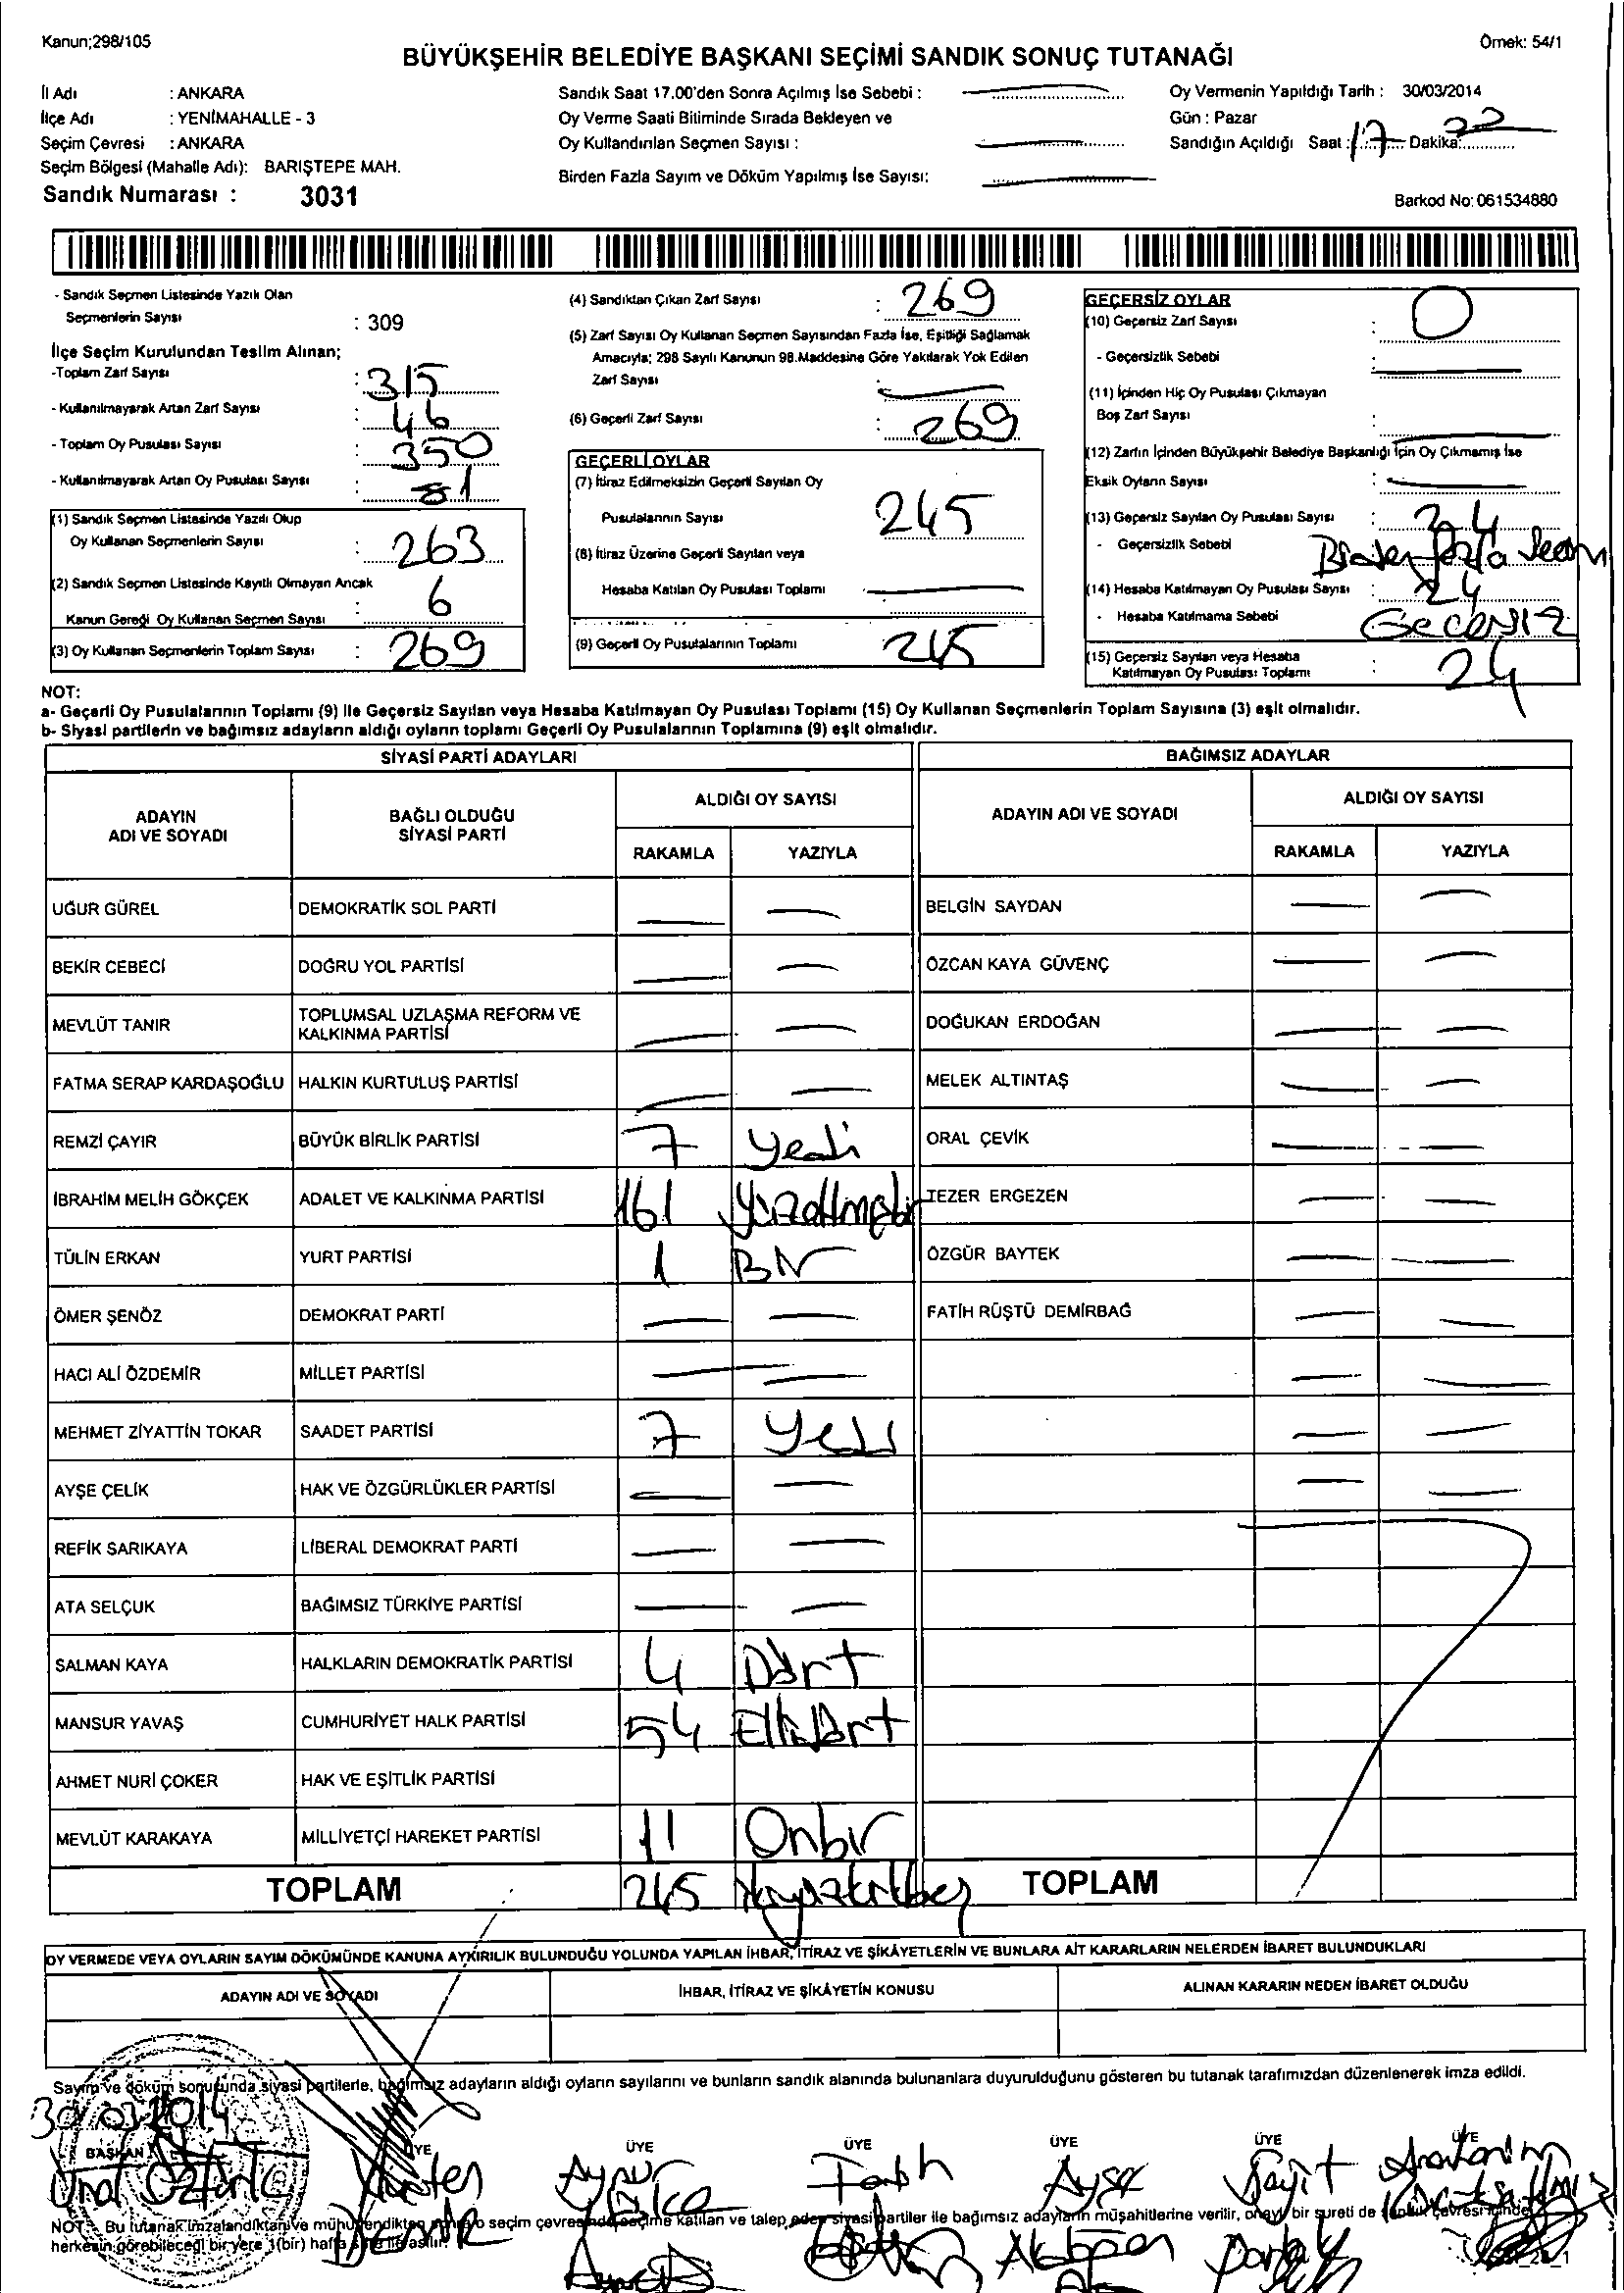 Kanun;298/105
Örnek: 54/1
BÜYÜKŞEHİR BELEDİYE BAŞKANI SEÇİMİ SANDIK SONUÇ TUTANAĞI
İl Adı : ANKARA
İlçe Adı : YENİMAHALLE - 3
Seçim Çevresi : ANKARA
Seçim Bölgesi (Mahalle Adı): BARIŞTEPE MAH.
Sandık Numarası : 3031
Sandık Saat 17.00'den Sonra Açılmış İse Sebebi :
Oy Verme Saati Bitiminde Sırada Bekleyen ve
Oy Kullandırılan Seçmen Sayısı :
Birden Fazla Sayım ve Döküm Yapılmış İse Sayısı:
Oy Vermenin Yapıldığı Tarih : 30/03/2014
Gün : Pazar
Sandığın Açıldığı Saat : 17 Dakika: 22
Barkod No: 061534880
- Sandık Seçmen Listesinde Yazılı Olan
Seçmenlerin Sayısı : 309
İlçe Seçim Kurulundan Teslim Alınan;
-Toplam Zarf Sayısı : 315
- Kullanılmayarak Artan Zarf Sayısı : 46
- Toplam Oy Pusulası Sayısı : 350
- Kullanılmayarak Artan Oy Pusulası Sayısı : 81
(1) Sandık Seçmen Listesinde Yazılı Olup
Oy Kullanan Seçmenlerin Sayısı : 263
(2) Sandık Seçmen Listesinde Kayıtlı Olmayan Ancak
Kanun Gereği Oy Kullanan Seçmen Sayısı : 6
(3) Oy Kullanan Seçmenlerin Toplam Sayısı : 269
(4) Sandıktan Çıkan Zarf Sayısı : 269
(5) Zarf Sayısı Oy Kullanan Seçmen Sayısından Fazla İse, Eşitliği Sağlamak
Amacıyla; 298 Sayılı Kanunun 98.Maddesine Göre Yakılarak Yok Edilen
Zarf Sayısı :
(6) Geçerli Zarf Sayısı : 269
GEÇERLİ OYLAR
(7) İtiraz Edilmeksizin Geçerli Sayılan Oy
Pusulalarının Sayısı 245
(8) İtiraz Üzerine Geçerli Sayılan veya
Hesaba Katılan Oy Pusulası Toplamı
(9) Geçerli Oy Pusulalarının Toplamı 245
GEÇERSİZ OYLAR
(10) Geçersiz Zarf Sayısı : 0
- Geçersizlik Sebebi :
(11) İçinden Hiç Oy Pusulası Çıkmayan
Boş Zarf Sayısı :
(12) Zarfın İçinden Büyükşehir Belediye Başkanlığı İçin Oy Çıkmamış İse
Eksik Oyların Sayısı :
(13) Geçersiz Sayılan Oy Pusulası Sayısı : 24
- Geçersizlik Sebebi Birden fazla
(14) Hesaba Katılmayan Oy Pusulası Sayısı : 24
- Hesaba Katılmama Sebebi Gecersiz
(15) Geçersiz Sayılan veya Hesaba
Katılmayan Oy Pusulası Toplamı : 24
NOT:
a- Geçerli Oy Pusulalarının Toplamı (9) İle Geçersiz Sayılan veya Hesaba Katılmayan Oy Pusulası Toplamı (15) Oy Kullanan Seçmenlerin Toplam Sayısına (3) eşit olmalıdır.
b- Siyasi partilerin ve bağımsız adayların aldığı oyların toplamı Geçerli Oy Pusulalarının Toplamına (9) eşit olmalıdır.
SİYASİ PARTİ ADAYLARI
ADAYIN ADI VE SOYADI
BAĞLI OLDUĞU SİYASİ PARTİ
ALDIĞI OY SAYISI
RAKAMLA YAZIYLA
UĞUR GÜREL DEMOKRATİK SOL PARTİ
BEKİR CEBECİ DOĞRU YOL PARTİSİ
MEVLÜT TANIR TOPLUMSAL UZLAŞMA REFORM VE
KALKINMA PARTİSİ
FATMA SERAP KARDAŞOĞLU HALKIN KURTULUŞ PARTİSİ
REMZİ ÇAYIR BÜYÜK BİRLİK PARTİSİ 7 Yedi
İBRAHİM MELİH GÖKÇEK ADALET VE KALKINMA PARTİSİ 161 Yüzaltmışbir
TÜLİN ERKAN YURT PARTİSİ 1 Bir
ÖMER ŞENÖZ DEMOKRAT PARTİ
HACI ALİ ÖZDEMİR MİLLET PARTİSİ
MEHMET ZİYATTİN TOKAR SAADET PARTİSİ 7 Yedi
AYŞE ÇELİK HAK VE ÖZGÜRLÜKLER PARTİSİ
REFİK SARIKAYA LİBERAL DEMOKRAT PARTİ
ATA SELÇUK BAĞIMSIZ TÜRKİYE PARTİSİ
SALMAN KAYA HALKLARIN DEMOKRATİK PARTİSİ 4 Dört
MANSUR YAVAŞ CUMHURİYET HALK PARTİSİ 54 Ellidört
AHMET NURİ ÇOKER HAK VE EŞİTLİK PARTİSİ
MEVLÜT KARAKAYA MİLLİYETÇİ HAREKET PARTİSİ 11 Onbir
TOPLAM 245 İkiyüzkırkbeş
BAĞIMSIZ ADAYLAR
ADAYIN ADI VE SOYADI
ALDIĞI OY SAYISI
RAKAMLA YAZIYLA
BELGİN SAYDAN
ÖZCAN KAYA GÜVENÇ
DOĞUKAN ERDOĞAN
MELEK ALTINTAŞ
ORAL ÇEVİK
TEZER ERGEZEN
ÖZGÜR BAYTEK
FATİH RÜŞTÜ DEMİRBAĞ
TOPLAM
OY VERMEDE VEYA OYLARIN SAYIM DÖKÜMÜNDE KANUNA AYKIRILIK BULUNDUĞU YOLUNDA YAPILAN İHBAR, İTİRAZ VE ŞİKÂYETLERİN VE BUNLARA AİT KARARLARIN NELERDEN İBARET BULUNDUKLARI
ADAYIN ADI VE SOYADI İHBAR, İTİRAZ VE ŞİKÂYETİN KONUSU ALINAN KARARIN NEDEN İBARET OLDUĞU
Sayım ve döküm sonucunda siyasi partilerle, bağımsız adayların aldığı oyların sayılarını ve bunların sandık alanında bulunanlara duyurulduğunu gösteren bu tutanak tarafımızdan düzenlenerek imza edildi.
30/03/2014
BAŞKAN ÜYE ÜYE ÜYE ÜYE ÜYE ÜYE
Aynur Fatih Ayşe Seyit
DEMİR
NOT: Bu tutanak imzalandıktan ve mühürlendikten sonra o seçim çevresinde seçime katılan ve talep eden siyasi partiler ile bağımsız adayların müşahitlerine verilir, onaylı bir sureti de sandık çevresi içinde
herkesin görebileceği bir yere 1(bir) hafta süre ile asılır.